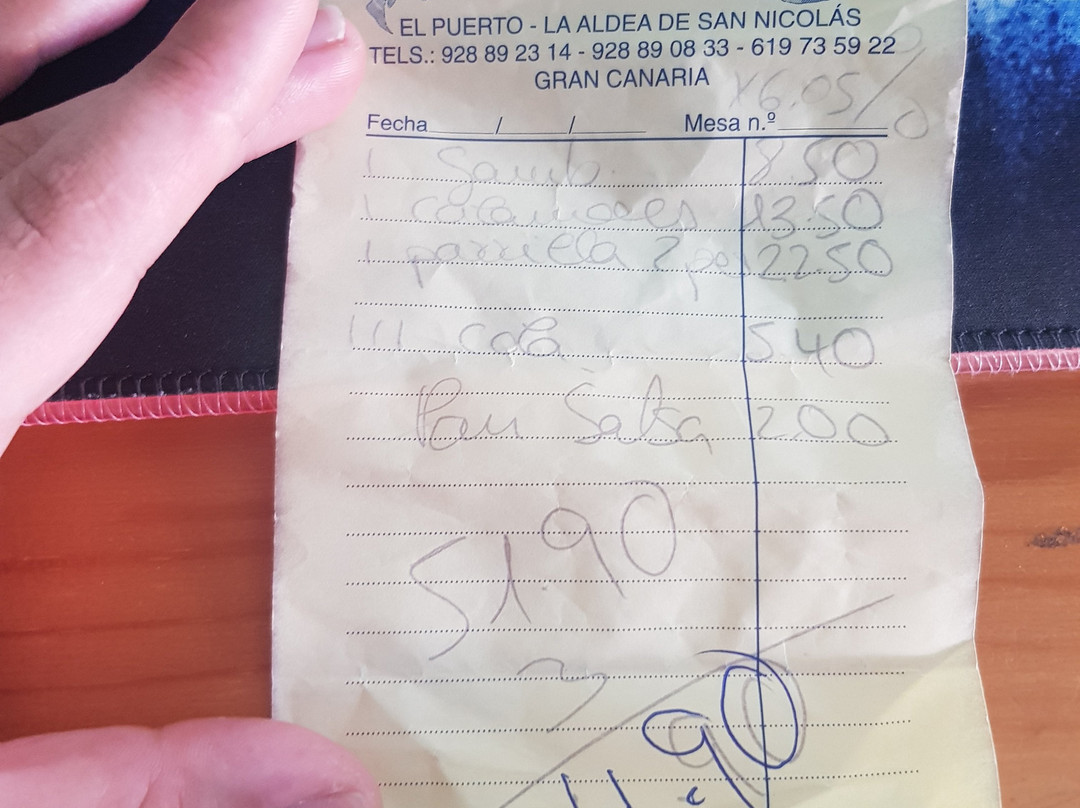 EL PUERTO - LA ALDEA DE SAN NICOLÁS
TELS.: 928 89 23 14 - 928 89 08 33 - 619 73 59 22
GRAN CANARIA
Fecha / / Mesa n.º
1 Gamb. 8.50
1 calamares 13.50
1 parriela 2 per 22.50
111 cola 5 40
Pan Salsa 2.00
51.90